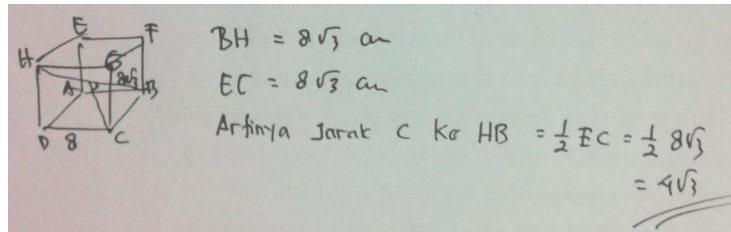 E
F
H
G
8√3
A
P
B
D
8
C
BH = 8√3 cm
EC = 8√3 cm
Artinya Jarak C Ke HB = 1/2 EC = 1/2 8√3
= 4√3